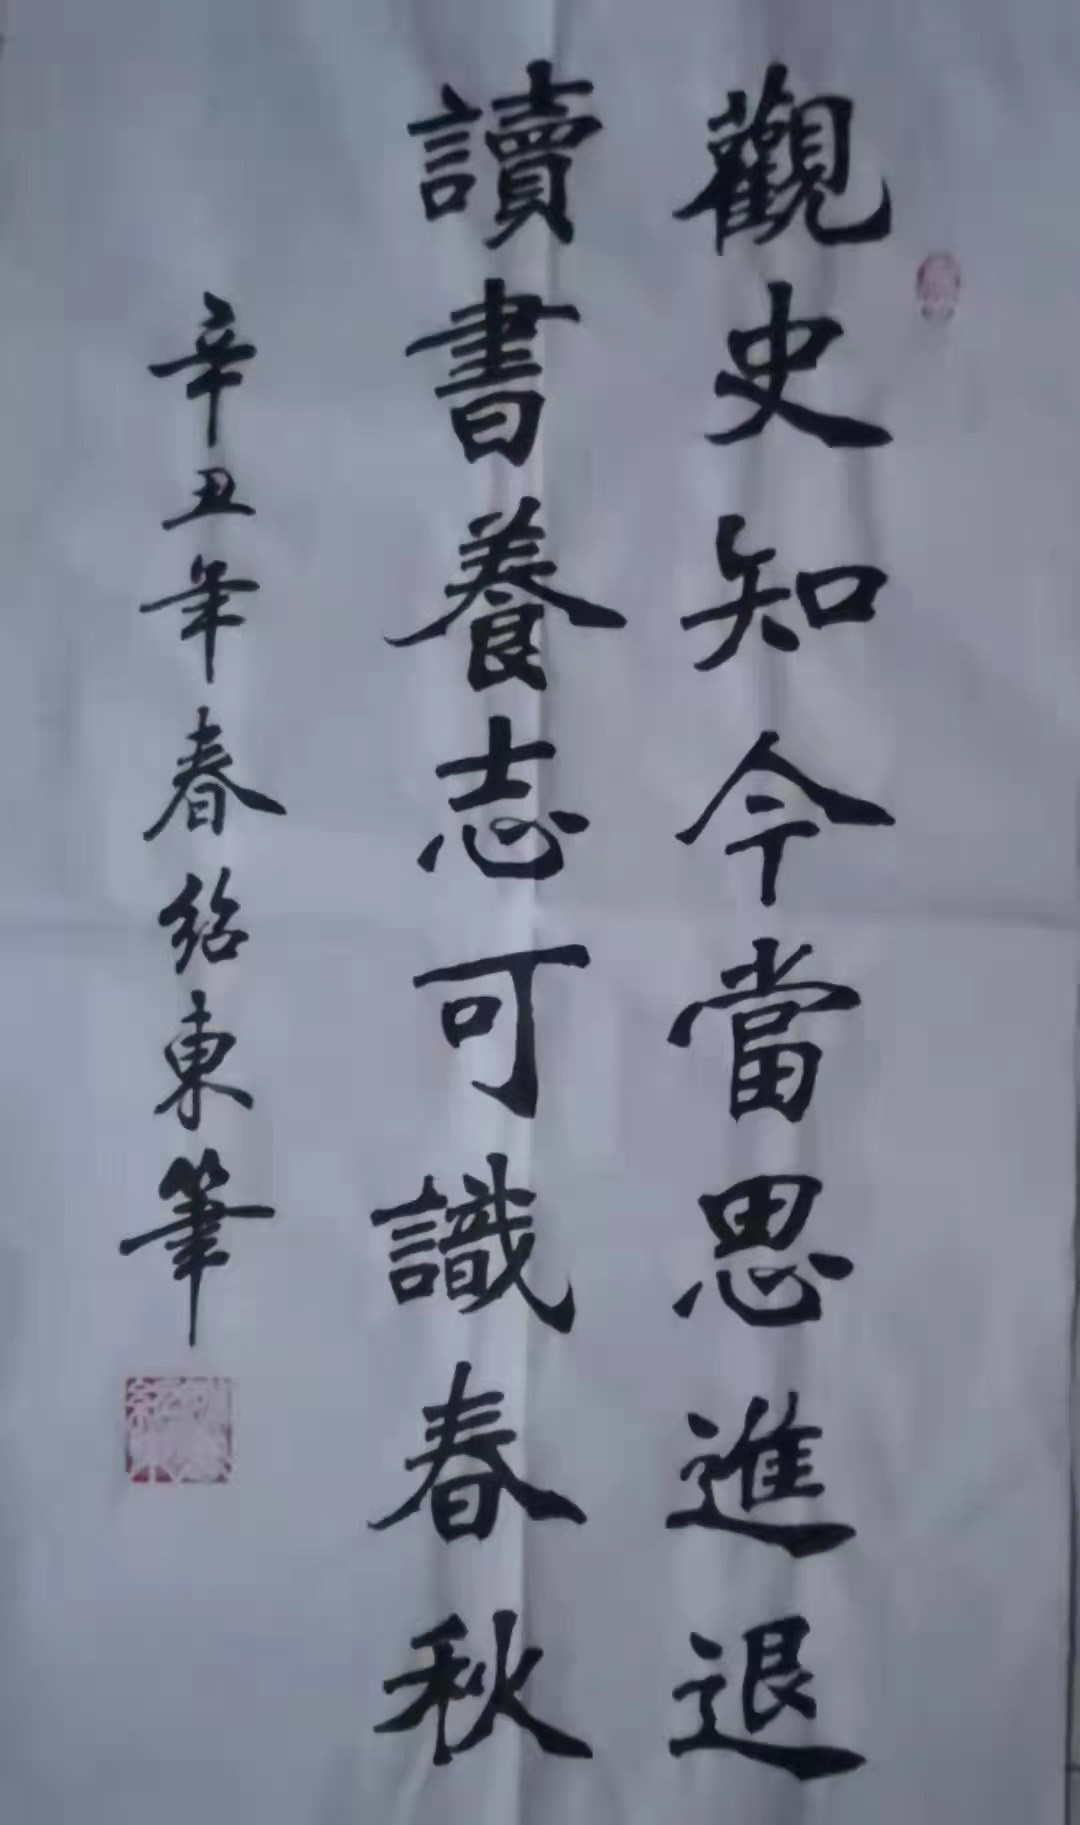 觀史知今當思進退
讀書養志可識春秋
辛丑年春紹東筆